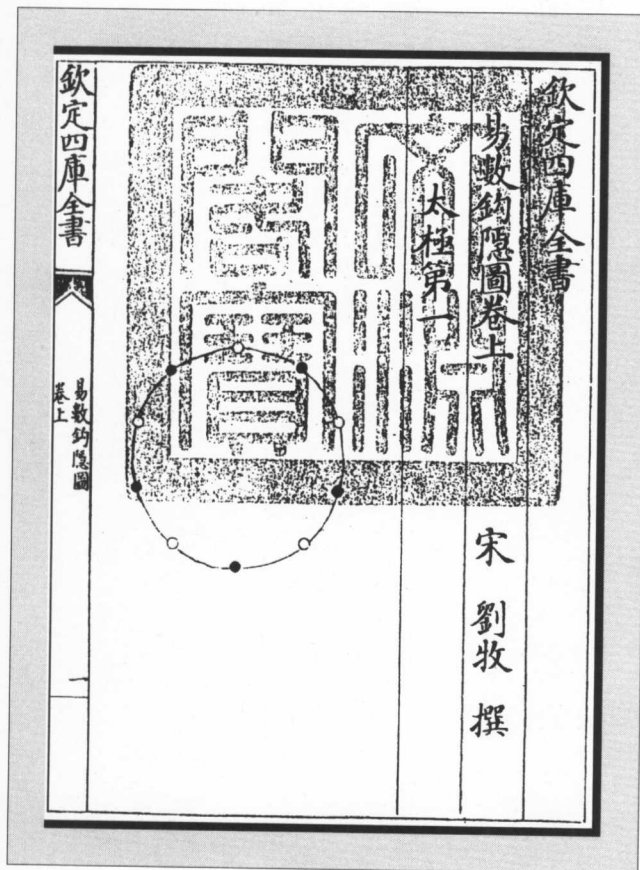 欽定四庫全書
易數鈎隱圖卷上 宋 劉牧 撰
太極第一
文淵閣寶
欽定四庫全書
易數鈎隱圖
卷上
一